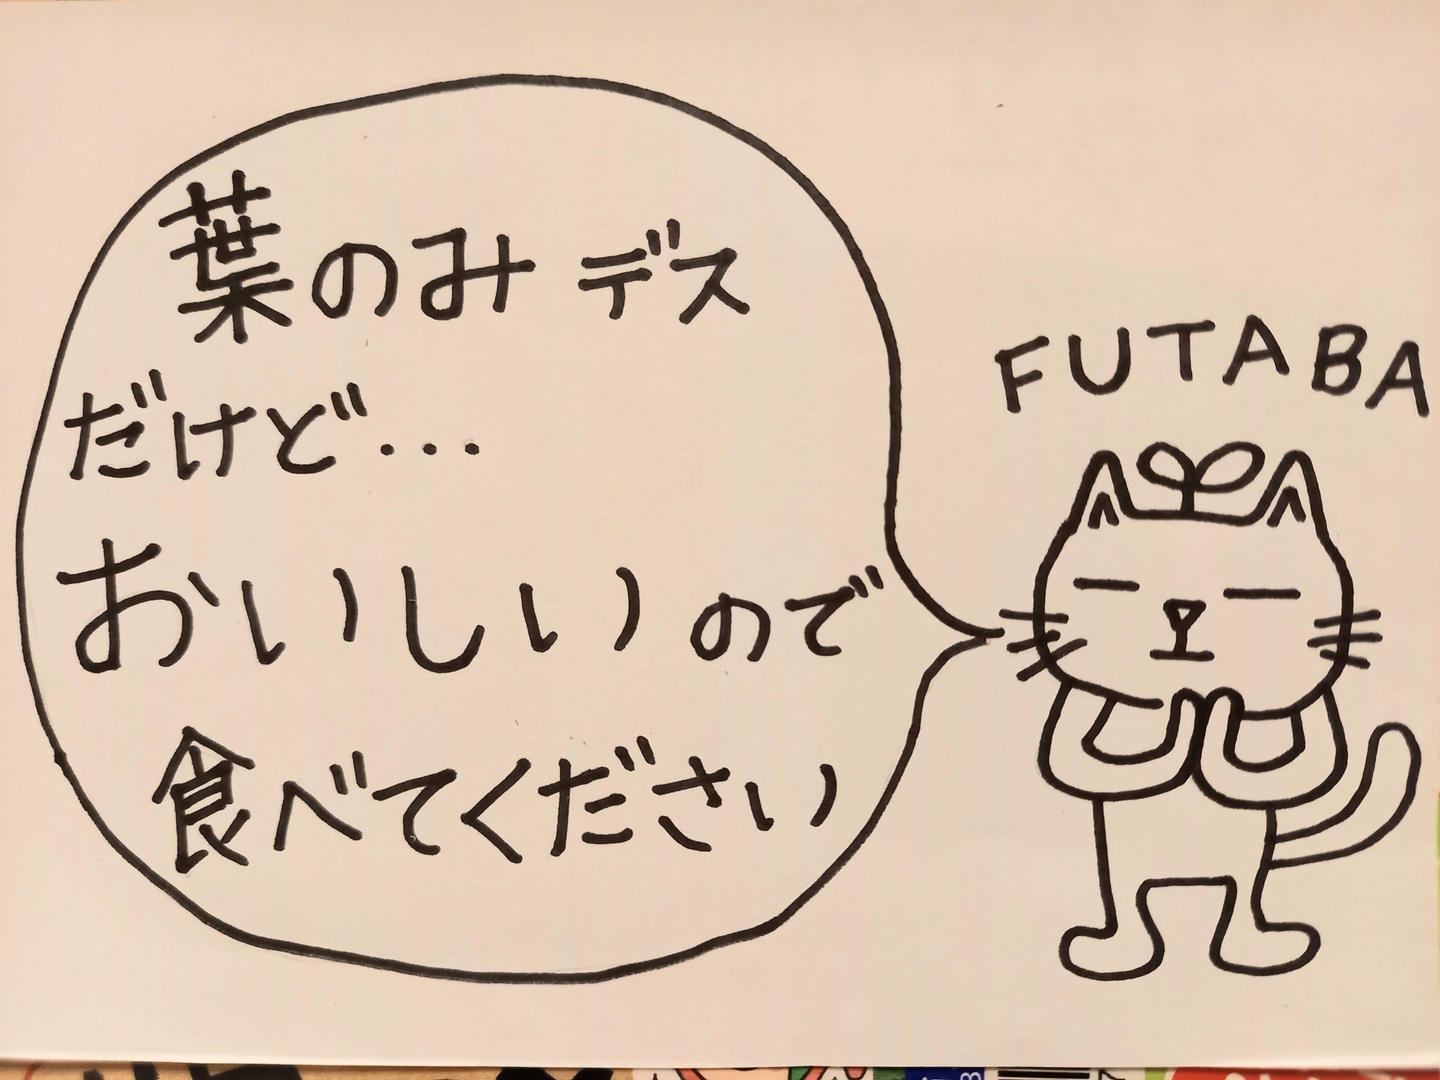 葉のみデス
だけど...
おいしいので
食べてください
FUTABA